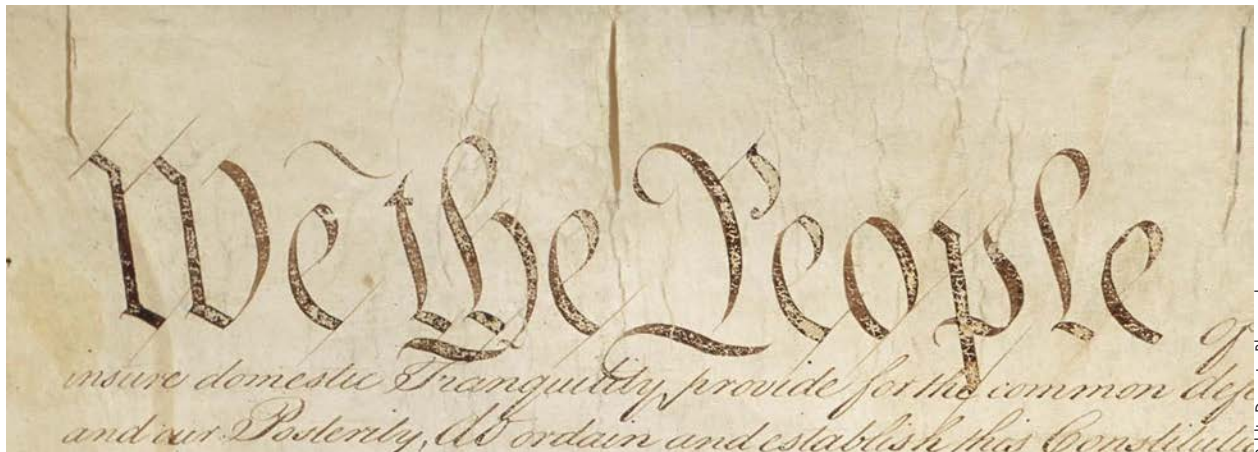 We the People
of
insure domestic Tranquility, provide for the common defe
and our Posterity, do ordain and establish this Constitutio